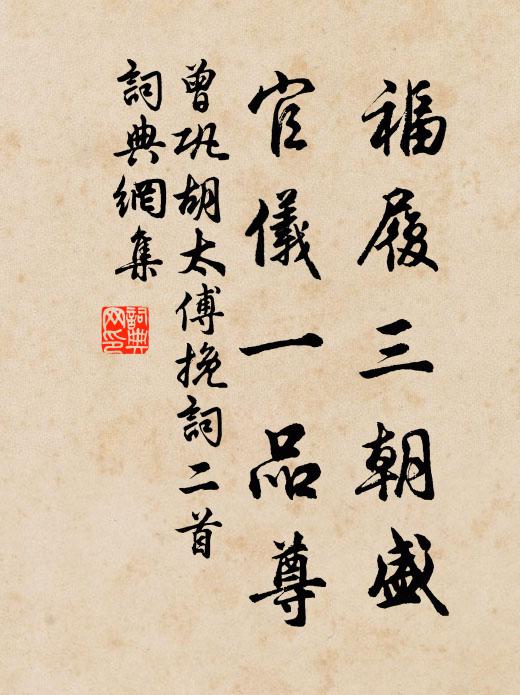 福履三朝盛
官儀一品尊
曾巩胡太傅挽詞二首
詞典網集
詞典网印